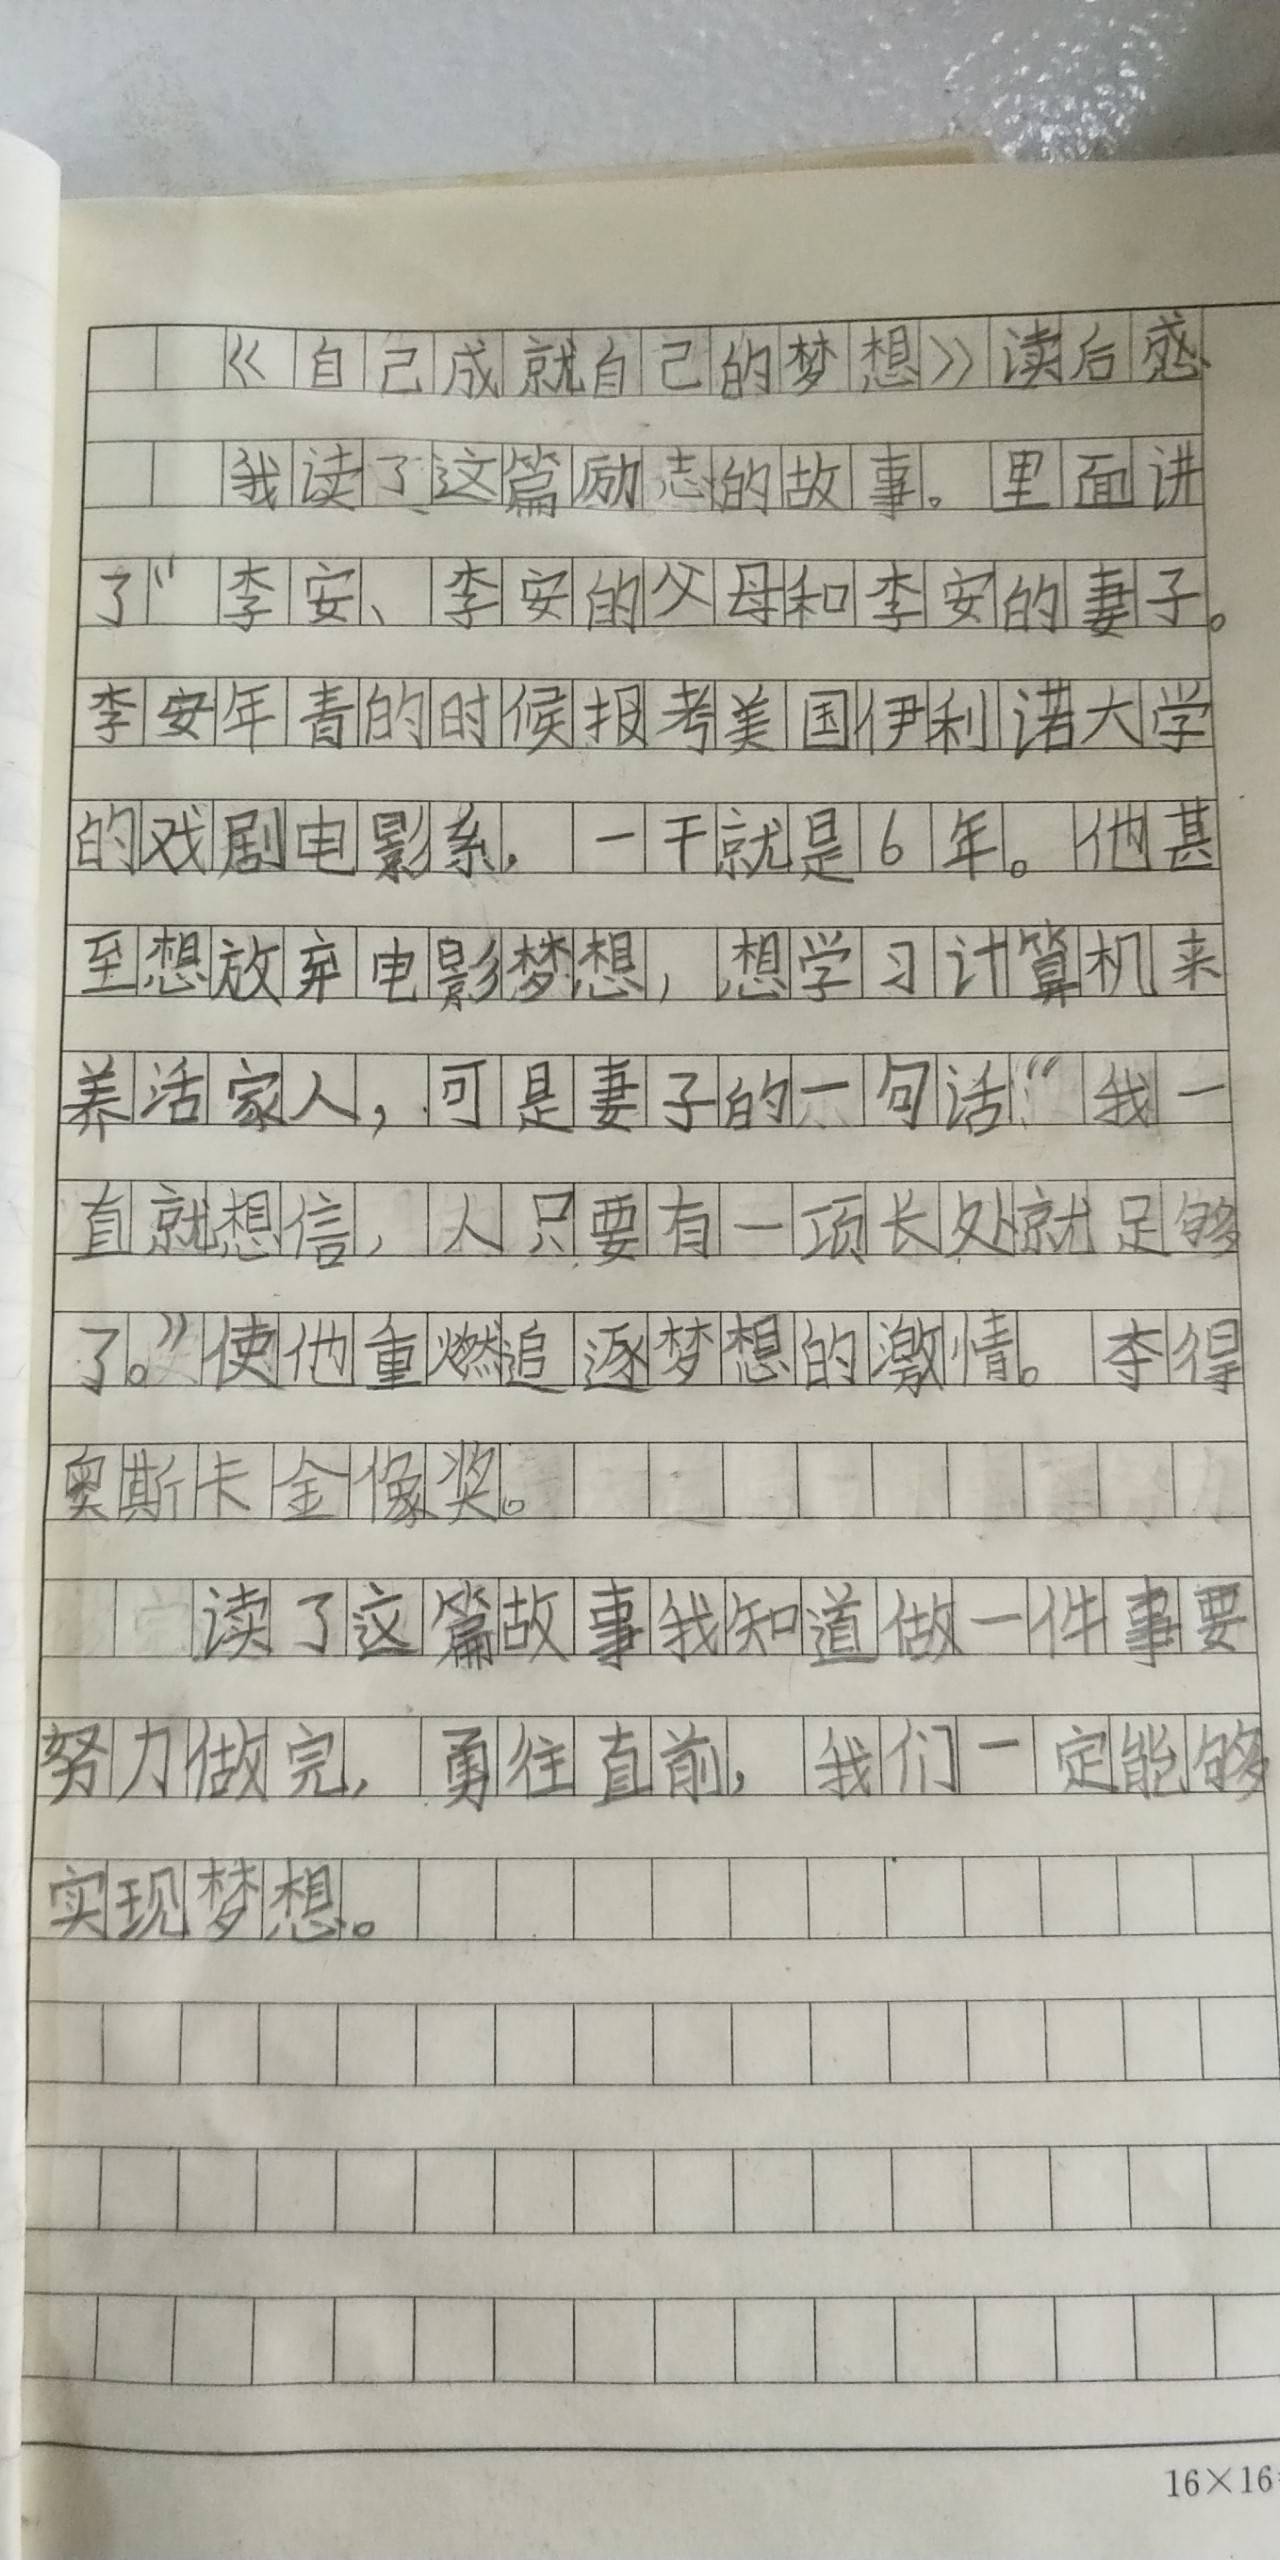 《自己成就自己的梦想》读后感
我读了这篇励志的故事。里面讲
了“李安、李安的父母和李安的妻子。
李安年青的时候报考美国伊利诺大学
的戏剧电影系，一干就是6年。他甚
至想放弃电影梦想，想学习计算机来
养活家人，可是妻子的一句话：“我一
直就想信，人只要有一项长处就足够
了。”使他重燃追逐梦想的激情。夺得
奥斯卡金像奖。
读了这篇故事我知道做一件事要
努力做完，勇往直前，我们一定能够
实现梦想。
16×16